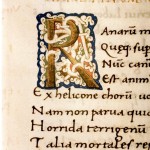 RAnarū m
Nūc can
Est anim
Ex helicone chorū
Nam non parua
Horrida terrigenū
Talia mortales